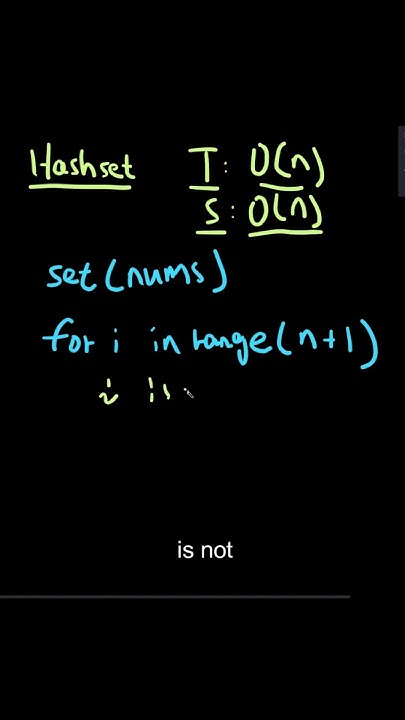 Hashset T: O(n)
S: O(n)
set(nums)
for i in range(n+1)
i is
is not